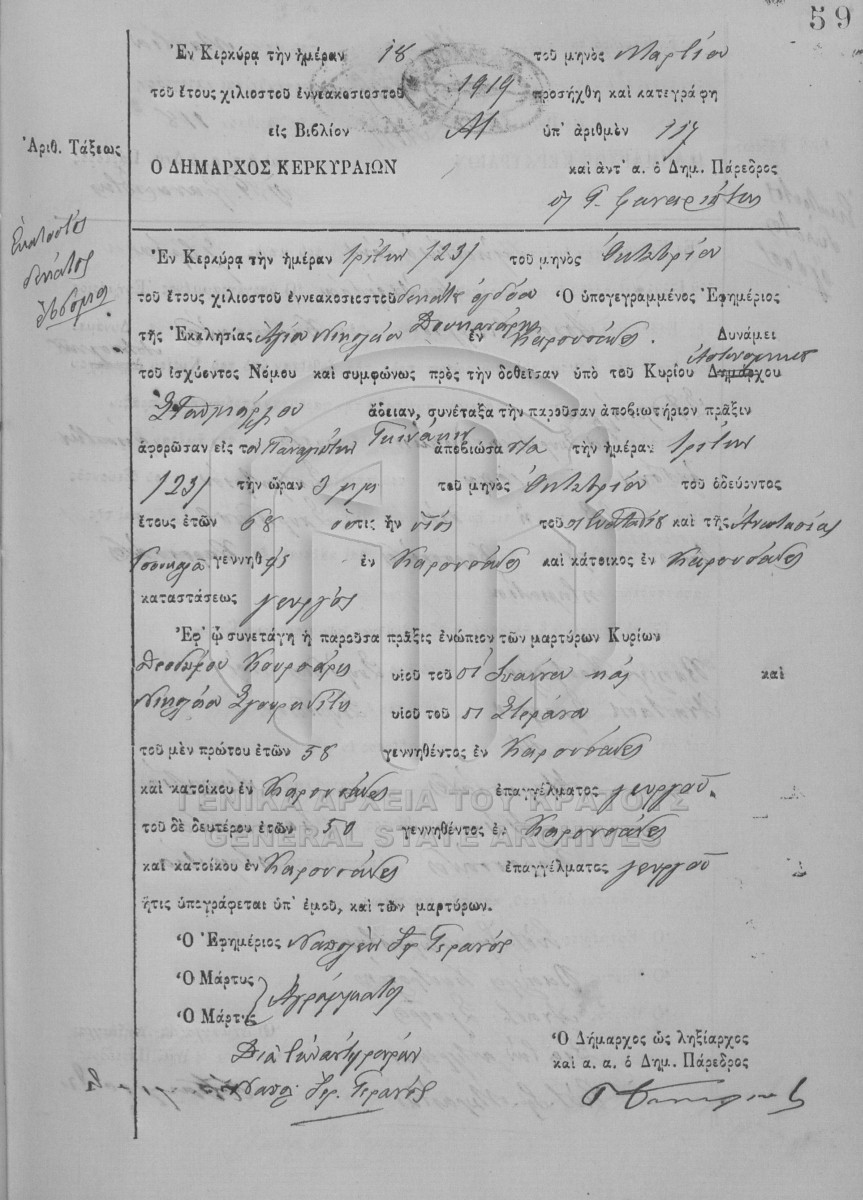 59
Ἐν Κερκύρᾳ τὴν ἡμέραν 18 τοῦ μηνὸς Μαρτίου
τοῦ ἔτους χιλιοστοῦ ἐννεακοσιοστοῦ 1919 προσήχθη καὶ κατεγράφη
εἰς Βιβλίον Α1 ὑπ' ἀριθμὸν 117
Ἀριθ. Τάξεως
Ο ΔΗΜΑΡΧΟΣ ΚΕΡΚΥΡΑΙΩΝ καὶ ἀντ' α. ὁ Δημ. Πάρεδρος
Ἑκατοστὸς
δέκατος
ἕβδομος
Ἐν Κερκύρᾳ τὴν ἡμέραν τρίτην /23/ τοῦ μηνὸς Ὀκτωβρίου
τοῦ ἔτους χιλιοστοῦ ἐννεακοσιοστοῦ δεκάτου ὀγδόου Ὁ ὑπογεγραμμένος Ἐφημέριος
τῆς Ἐκκλησίας Ἁγίου Νικολάου ἐν Καρουσάδες. Δυνάμει
τοῦ ἰσχύοντος Νόμου καὶ συμφώνως πρὸς τὴν δοθεῖσαν ὑπὸ τοῦ Κυρίου Δημάρχου Ἀστυνομικοῦ
Σταθμάρχου ἄδειαν, συνέταξα τὴν παροῦσαν ἀποβιωτήριον πρᾶξιν
ἀφορῶσαν εἰς τον Παναγιώτην ἀποβιώσαντα τὴν ἡμέραν τρίτην
/23/ τὴν ὥραν 9 μμ τοῦ μηνὸς Ὀκτωβρίου τοῦ ὁδεύοντος
ἔτους ἐτῶν 68 ὅστις ἦν υἱὸς τοῦ π Εὐσταθίου καὶ τῆς Ἀναστασίας
γεννηθεὶς ἐν Καρουσάδες καὶ κάτοικος ἐν Καρουσάδες
καταστάσεως γεωργὸς
Ἐφ' ᾧ συνετάγη ἡ παροῦσα πρᾶξις ἐνώπιον τῶν μαρτύρων Κυρίων
Θεοδώρου Κουρσάρης υἱοῦ τοῦ π Ἰωάννου καὶ
Νικολάου υἱοῦ τοῦ π Στεφάνου
τοῦ μὲν πρώτου ἐτῶν 58 γεννηθέντος ἐν Καρουσάδες
καὶ κατοίκου ἐν Καρουσάδες ἐπαγγέλματος γεωργοῦ
ΓΕΝΙΚΑ ΑΡΧΕΙΑ ΤΟΥ ΚΡΑΤΟΥΣ
τοῦ δὲ δευτέρου ἐτῶν 50 γεννηθέντος ἐν Καρουσάδες
GENERAL STATE ARCHIVES
καὶ κατοίκου ἐν Καρουσάδες ἐπαγγέλματος γεωργοῦ
ἥτις ὑπογράφεται ὑπ' ἐμοῦ, καὶ τῶν μαρτύρων.
Ὁ Ἐφημέριος Ναπολέων Ἱερ Γερανός
Ὁ Μάρτυς
Ἀγράμματοι
Ὁ Μάρτυς
Ὁ Δήμαρχος ὡς ληξίαρχος
Διὰ τὴν ἀντιγραφὴν καὶ α. α. ὁ Δημ. Πάρεδρος
Ναπολ. Ἱερ. Γερανός